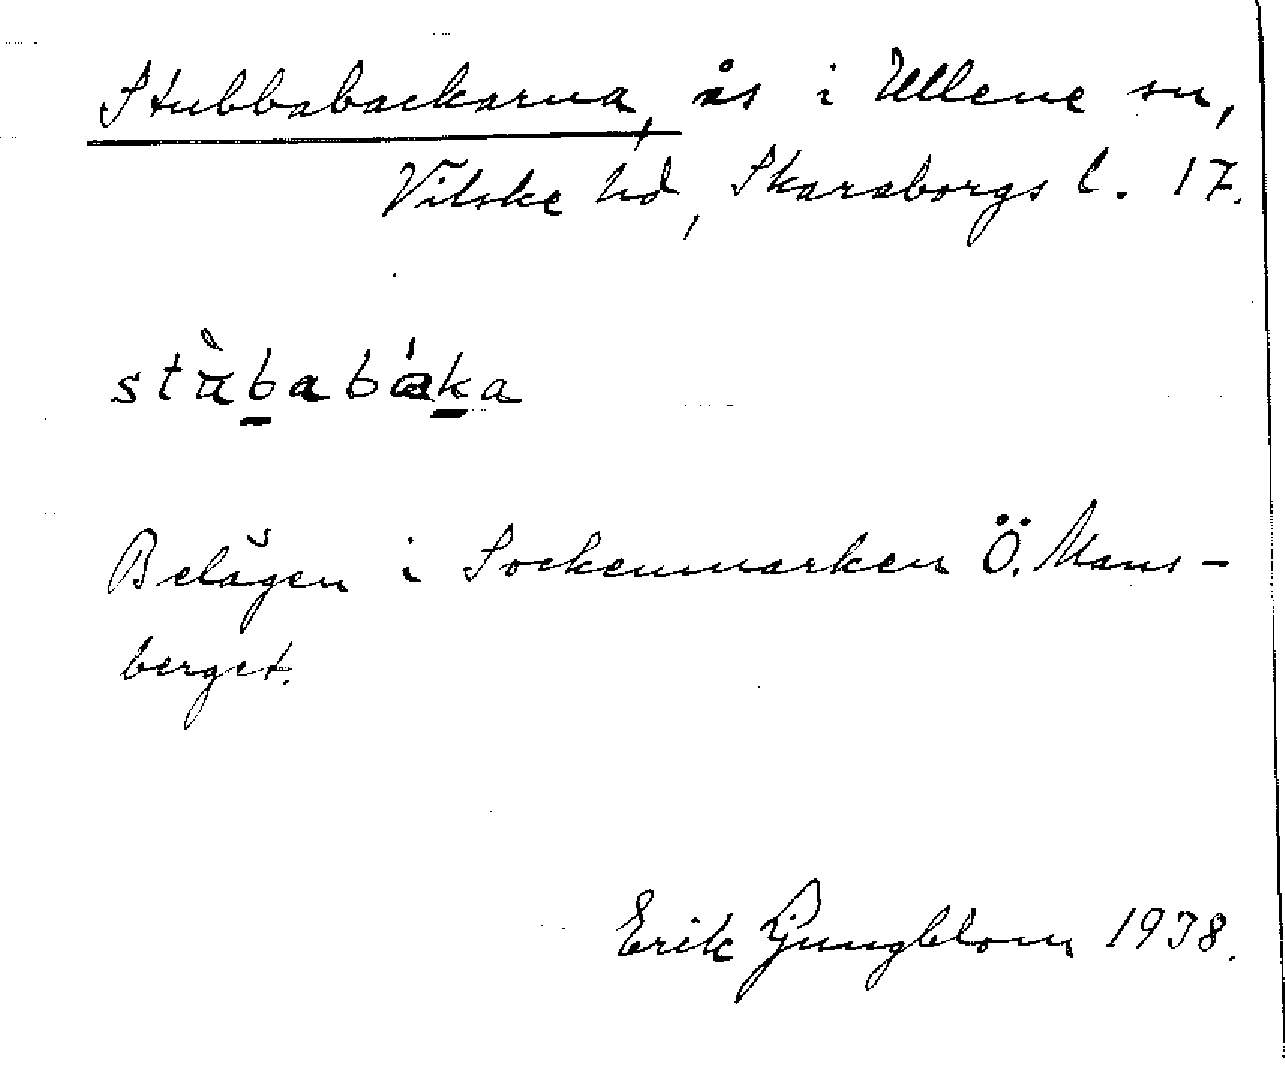 Stubbabackarna, ås i Ullene sn,
Vilske hd, Skaraborgs l. 17.
stùbabáka
Belägen i Sockenmarken Ö. Mans-
berget.
Erik Ljungblom 1938.